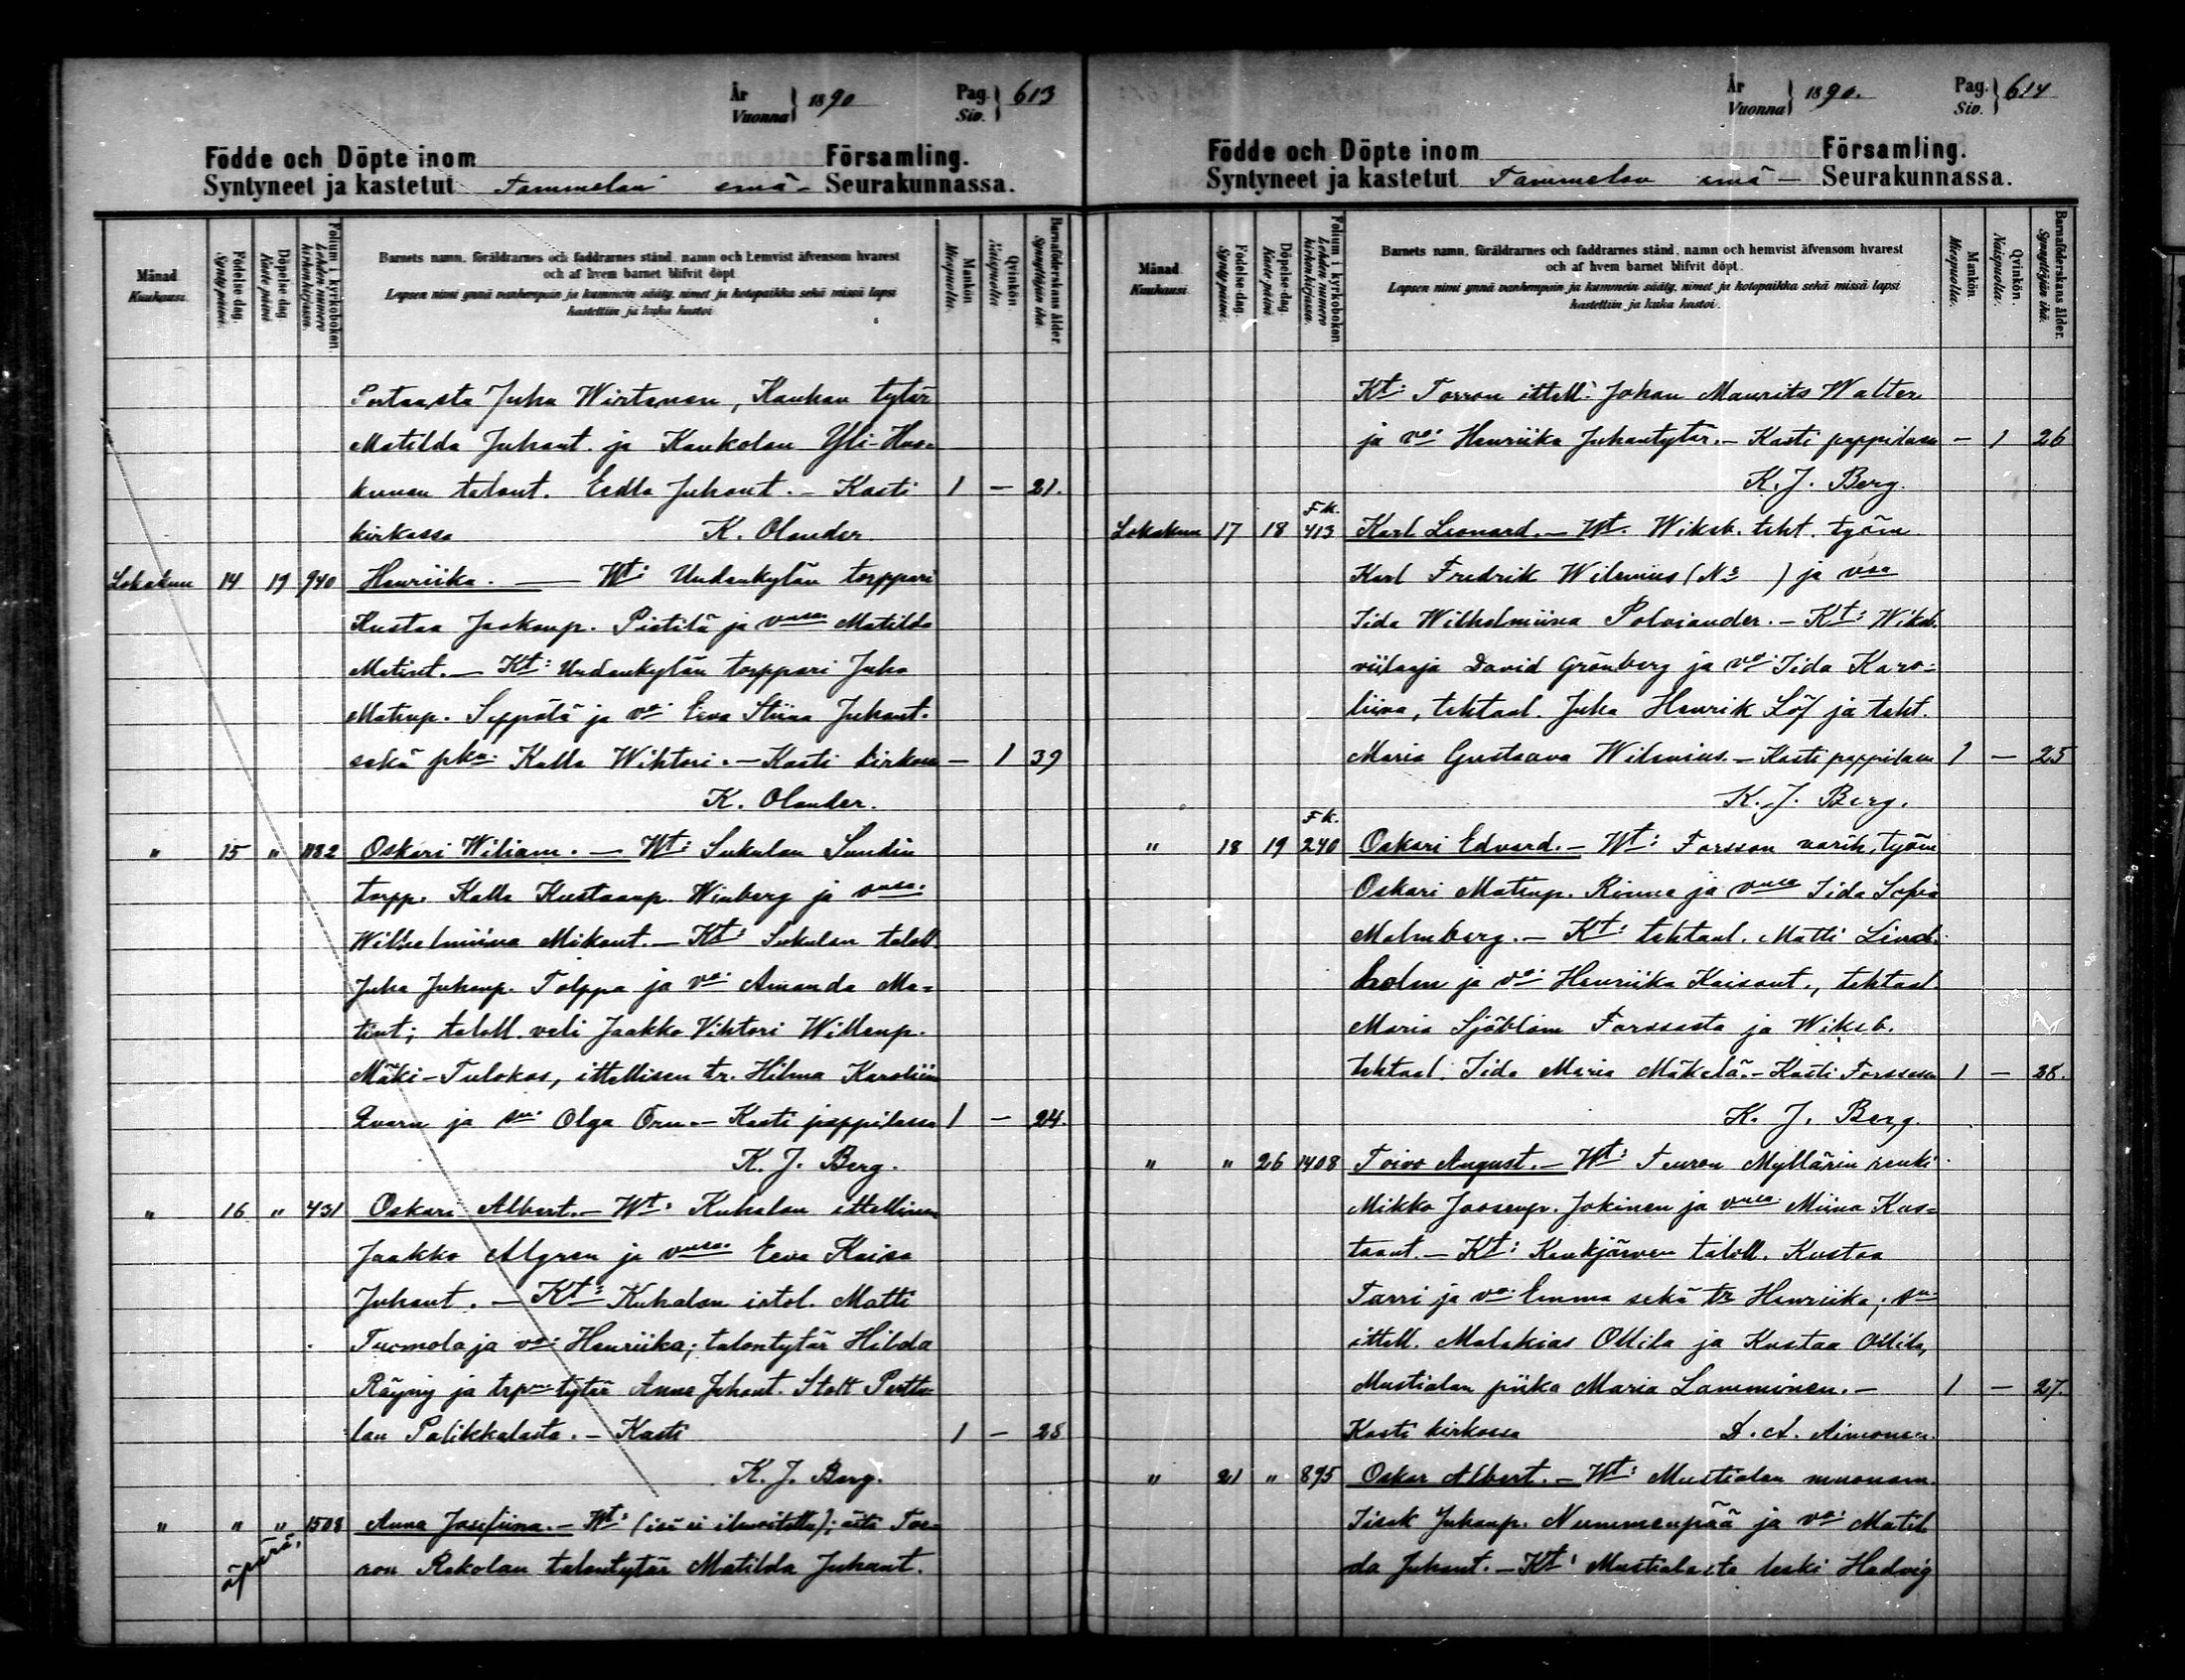 År
Vuonna } 1890 Pag.
Siv. } 613
Födde och Döpte inom Församling.
Syntyneet ja kastetut Tammelan emä- Seurakunnassa.
Månad
Kuukausi.
Födelse dag.
Synty päivä.
Döpelse dag
Kaste päivä
Folium i kyrkoboken
Lehden numero
kirkon kirjassa.
Barnets namn, föräldrarnes och faddrarnes stånd, namn och hemvist äfvensom hvarest
och af hvem barnet blifvit döpt.
Lapsen nimi ynnä vanhempain ja kummein sääty, nimet ja kotopaikka sekä missä lapsi
kastettiin ja kuka kastoi
Mankön
Miespuolta.
Qvinkön.
Naispuolta
Barnaföderskans ålder.
Synnyttäjän ikä.
Portaasta Juha Wirtanen, Kauhan tytär
Matilda Juhant. ja Kaukolan Yli-Hus-
kunen talont. Eedla Juhant. – Kasti 1 – 21.
kirkossa K. Olander
Lokakuu 14 19 940 Henriika. — Wt: Uudenkylän torppari
Kustaa Jaakonp. Pietilä ja vnsa Matilda
Matint. – Kt: Uudenkylän torppari Juho
Matinp. Seppälä ja vo: Eeva Stiina Juhant.
sekä pka: Kalle Wihtori. – Kasti kirkossa – 1 39
K. Olander.
" 15 " 1182 Oskari Wiliam. – Wt: Sukulan Sundin
torpp. Kalle Kustaanp. Winberg ja vnsa:
Wilhelmiina Mikont. – Kt: Sukulan taloll
Juha Juhanp. Tolppa ja vo: Amanda Ma-
tint; taloll. veli Jaakko Vihtori Willenp.
Mäki-Tulokas, ittellisen tr. Hilma Karoliina
Qvarn ja Olga Örn. – Kasti pappilassa 1 – 24.
K. J. Berg.
" 16 " 431 Oskari Albert. – Wt: Kuhalan ittellinen
Jaakko Algren ja vnsa: Eeva Kaisa
Juhant. – Kt: Kuhalan istol. Matti
Tuomola ja vo: Henriika; talontytär Hilda
Räyny ja trpn tytär Anna Juhant. Stolt Pertto-
lan Palikkalasta. – Kasti 1 – 28
K. J. Berg.
" " " 1508 Anna Josefiina. – Wt: (isä ei ilmoitettu); äiti Tor-
äpärä,
ron Rekolan talontytär Matilda Juhant.
År
Vuonna } 1890. Pag.
Siv. } 614
Födde och Döpte inom Församling.
Syntyneet ja kastetut Tammelan emä – Seurakunnassa.
Månad
Kuukausi.
Födelse dag.
Synty päivä.
Döpelse dag.
Kaste päivä
Folium i kyrkoboken
Lehden numero
kirkon kirjassa.
Barnets namn, föräldrarnes och faddrarnes stånd, namn och hemvist äfvensom hvarest
och af hvem barnet blifvit döpt.
Lapsen nimi ynnä vanhempain ja kummein sääty, nimet ja kotopaikka sekä missä lapsi
kastettiin ja kuka kastoi.
Mankön.
Miespuolta.
Qvinkön.
Naispuolta.
Barnaföderskans ålder.
Synnyttäjän ikä.
Kt: Torron ittell: Johan Maurits Walter
ja vo: Henriika Juhantytär. – Kasti pappilassa – 1 26
K. J. Berg.
F.K.
Lokakuu 17 18 413 Karl Leonard. – Wt. Wiksb. teht. työm
Karl Fredrik Wilenius (No ) ja vsa
Iida Wilhelmiina Polviander. – Kt: Wiksb.
viilaaja David Grönberg ja vo: Iida Karo-
liina, tehtaal. Juha Henrik Löf ja teht.
Maria Gustaava Wilenius. – Kasti pappilassa 1 – 25
K. J. Berg.
F.K.
" 18 19 240 Oskari Edvard. – Wt: Forssan värih. työm
Oskari Matinp. Rinne ja vnsa Iida Sofia
Malmberg. – Kt: tehtaal. Matti Lind-
holm ja vo: Henriika Kaisant., tehtaal.
Maria Sjöblom Forssasta ja Wiksb.
tehtaal. Iida Maria Mäkelä. – Kasti Forssassa 1 – 28.
K. J. Berg.
" " 26 1408 Toivo August. – Wt: Teuron Myllärin renki
Mikko Joosenp. Jokinen ja vnsa Miina Kus-
taant. – Kt: Kaukjärven taloll. Kustaa
Tarri ja vo: Emma sekä tr Henriika;
ittell. Malakias Ollila ja Kustaa Ollila,
Mustialan piika Maria Lamminen. – 1 – 27.
Kasti kirkossa A. A. Aimonen.
" 21 " 895 Oskar Albert. – Wt: Mustialan muonam.
Iisak Juhanp. Nummenpää ja vo: Matil
da Juhant. – Kt: Mustialasta leski Hedvig